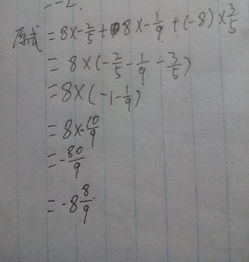 =-2.
原式=8×-2/5+8×-1/9+(-8)×3/5
=8×(-2/5-1/9-3/5)
=8×(-1-1/9)
=8×-10/9
=-80/9
=-8 8/9